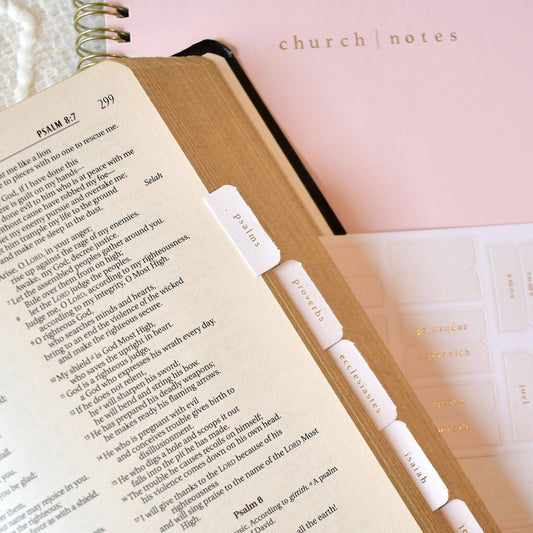 church | notes
PSALM 8:7
299
ar me like a lion
to pieces with no one to rescue me.
God, if I have done this
e is guilt on my hands—
done evil to him who is at peace with me
ithout cause have robbed my foe—
et my enemy pursue and overtake me;
him trample my life to the ground
and make me sleep in the dust.
Selah
Arise, O LORD, in your anger;
rise up against the rage of my enemies.
Awake, my God; decree justice.
7 Let the assembled peoples gather around you.
Rule over them from on high;
8 let the LORD judge the peoples.
Judge me, O LORD, according to my righteousness,
according to my integrity, O Most High.
9 O righteous God,
who searches minds and hearts,
bring to an end the violence of the wicked
and make the righteous secure.
10 My shield d is God Most High,
who saves the upright in heart.
11 God is a righteous judge,
a God who expresses his wrath every day.
12 If he does not relent,
he e will sharpen his sword;
he will bend and string his bow.
13 He has prepared his deadly weapons;
he makes ready his flaming arrows.
14 He who is pregnant with evil
and conceives trouble gives birth to
disillusionment.
15 He who digs a hole and scoops it out
falls into the pit he has made.
16 The trouble he causes recoils on himself;
his violence comes down on his own head.
17 I will give thanks to the LORD because of his
righteousness
and will sing praise to the name of the LORD Most
High.
Psalm 8
music. According to gittith. g A psalm
of David.
all the earth!
you.
you be glad;
name may rejoice in you.
the righteous;
favor as with a shield.
psalms
proverbs
ecclesiastes
isaiah
je
zephaniah